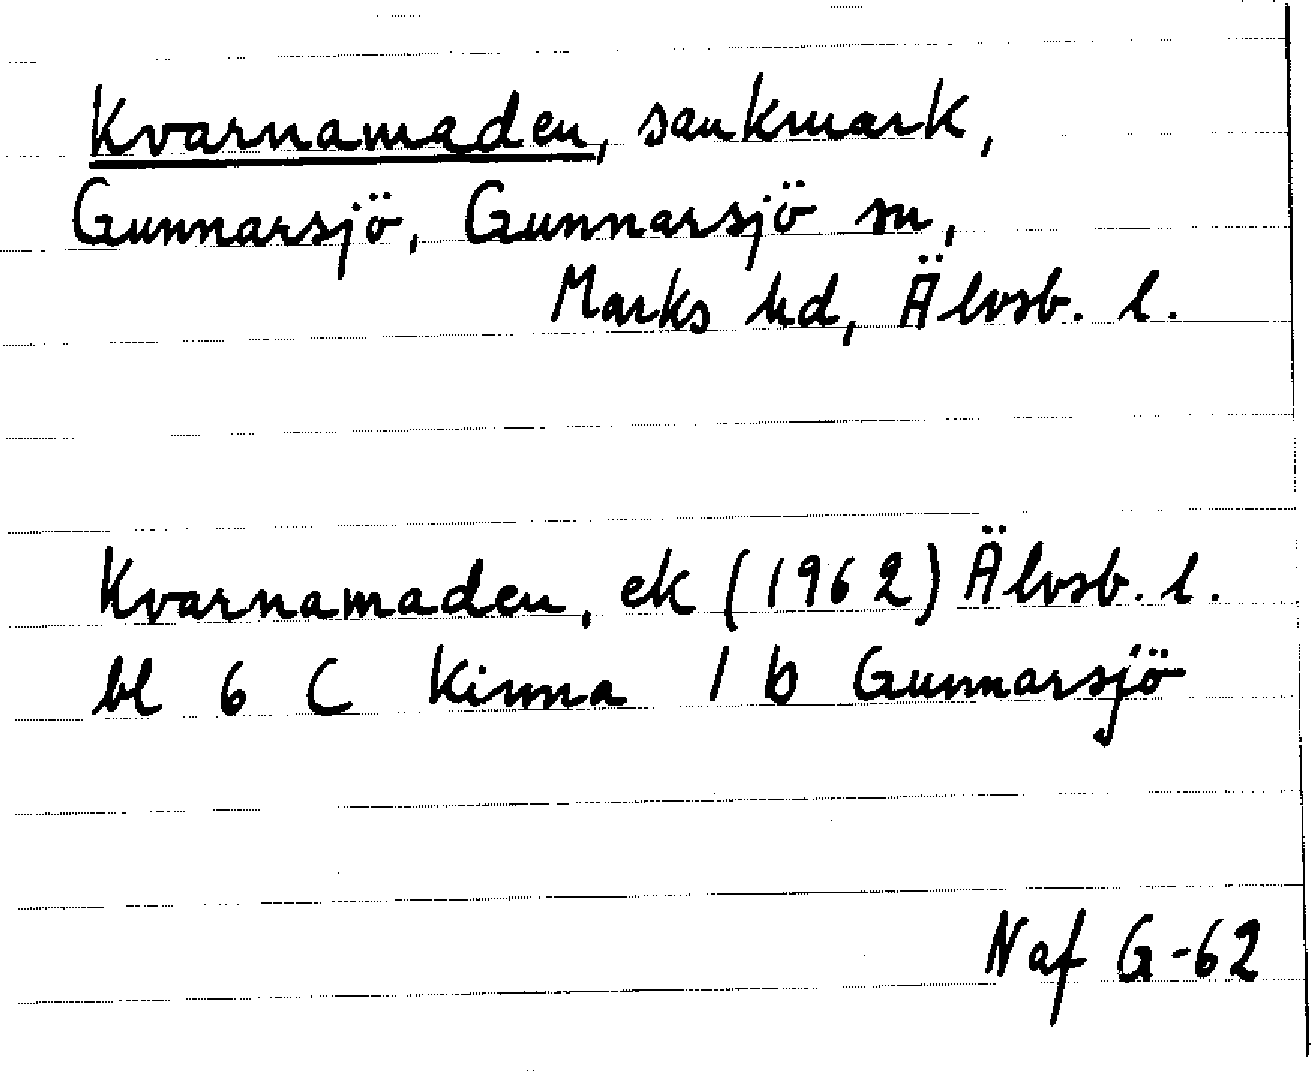 Kvarnamaden, sankmark,
Gunnarsjö, Gunnarsjö sn,
Marks hd, Älvsb. l.
Kvarnamaden, ek (1962) Älvsb. l.
bl 6 C Kinna 1 b Gunnarsjö
Naf G-62